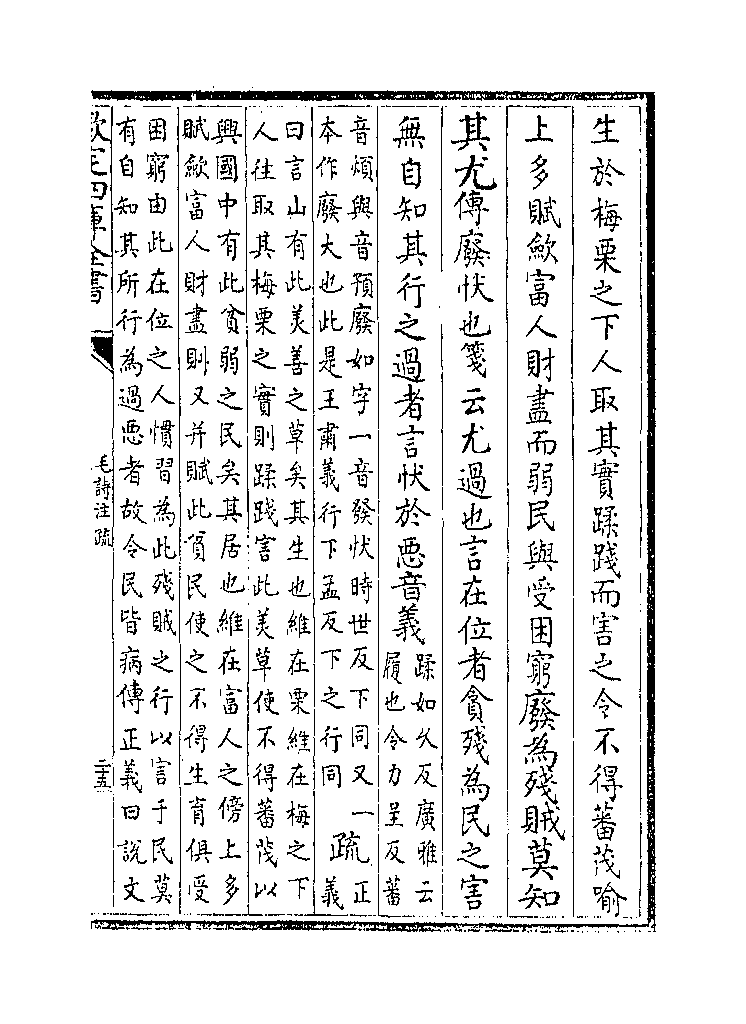 生於梅栗之下人取其實蹂踐而害之令不得蕃茂喻
上多賦歛富人財盡而弱民與受困窮廢為殘賊莫知
其尤傳廢忕也箋云尤過也言在位者貪殘為民之害
無自知其行之過者言忕於惡音義
蹂如久反廣雅云
履也令力呈反蕃
音煩與音預廢如字一音發忕時世反下同又一
本作廢大也此是王肅義行下孟反下之行同
疏
正
義
曰言山有此美善之草矣其生也維在栗維在梅之下
人往取其梅栗之實則蹂踐害此美草使不得蕃茂以
興國中有此貧弱之民矣其居也維在富人之傍上多
賦歛富人財盡則又并賦此貧民使之不得生育俱受
困窮由此在位之人慣習為此殘賊之行以害于民莫
有自知其所行為過惡者故令民皆病傳正義曰說文
欽定四庫全書
毛詩注疏
二五